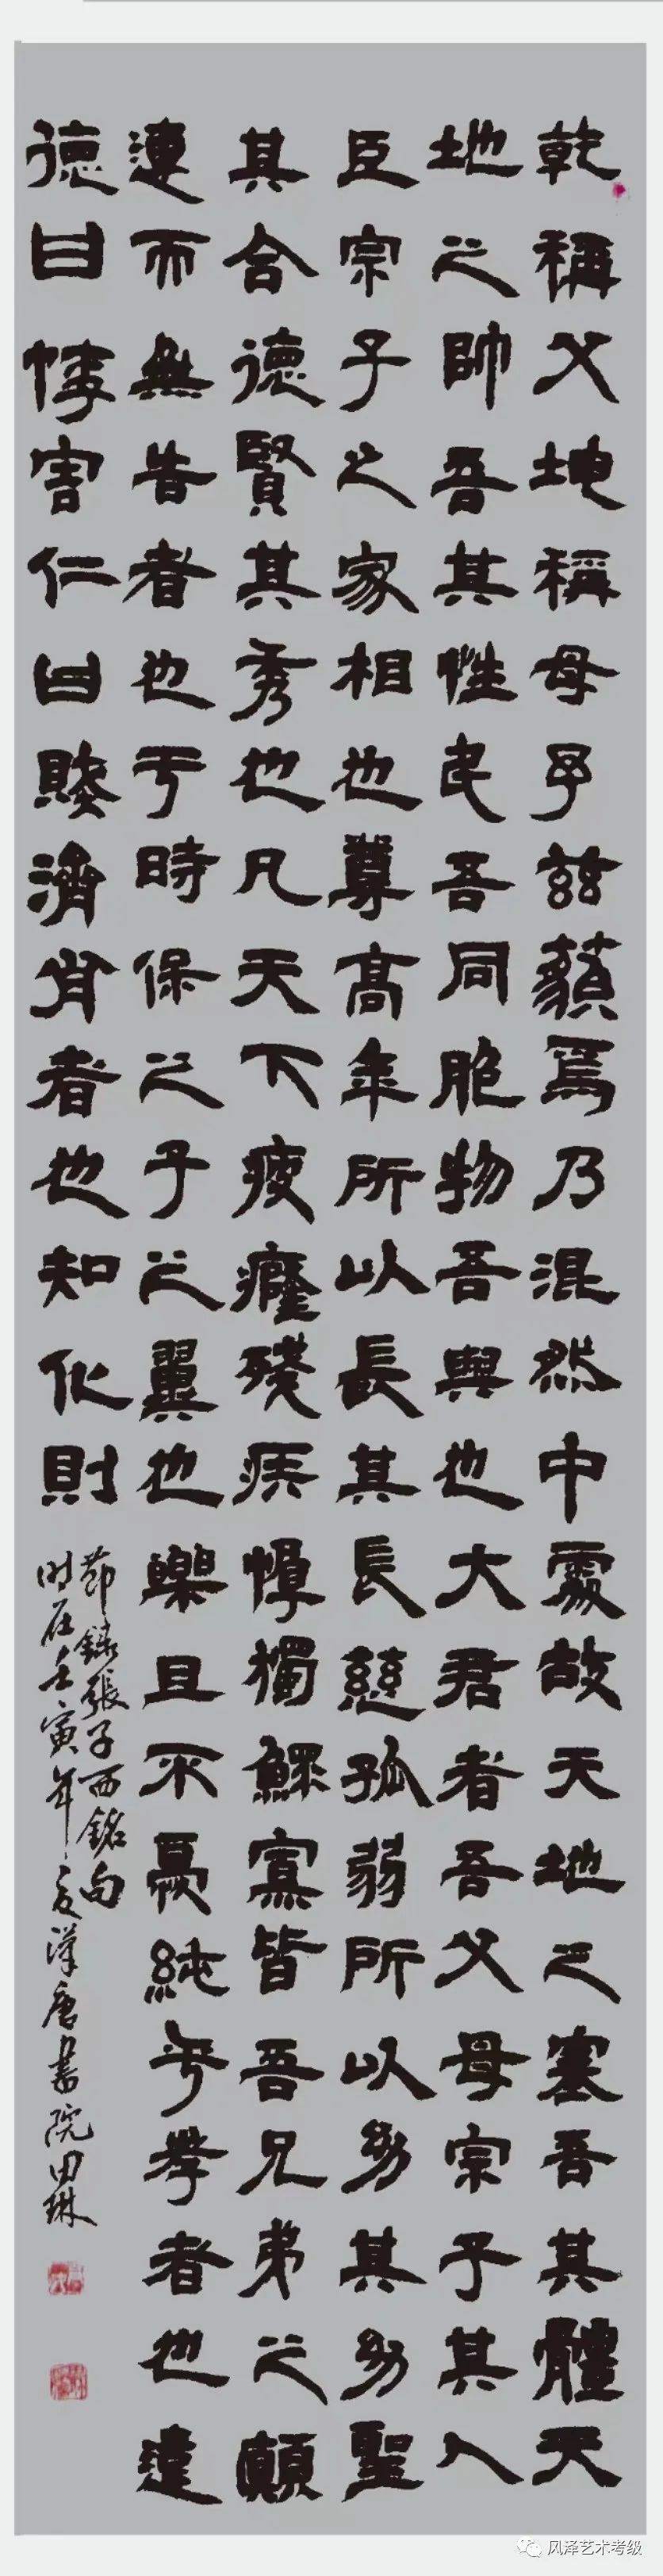 乾稱父坤稱母予茲藐焉乃混然中處故天地之塞吾其體天
地之帥吾其性民吾同胞物吾與也大君者吾父母宗子其人
臣宗子之家相也尊高年所以長其長慈孤弱所以幼其幼聖
其合德賢其秀也凡天下疲癃殘疾惸獨鰥寡皆吾兄弟之顛
連而無告者也于時保之子之翼也樂且不憂純乎孝者也違
德曰悖害仁曰賊濟肖者也知化則
節錄張子西銘句
時在壬寅年之夏漢唐書院田琳
风泽艺术考级